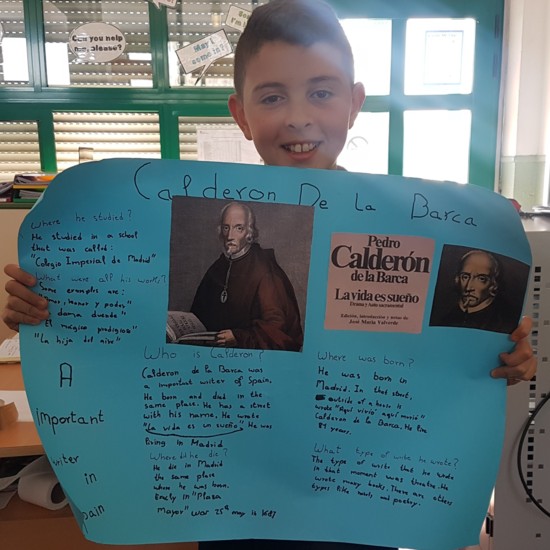 Can you help
me, please?
May I
come in?
Calderon De La Barca
Where he studied?
He studied in a school
that was called:
"Colegio Imperial de Madrid"
What were all his works?
Some examples are:
Amor, Honor y poder"
dama duende"
El magico prodigioso"
"La hija del aire"
A
important
writer
in
Spain
Pedro
Calderón
de la Barca
La vida es sueño
Drama y auto sacramental
Edición, introducción y notas de
José María Valverde
Who is Calderon?
Calderon de la Barca was
a important writer of Spain.
He born and died in the
same place. He has a street
with his name. He wrote
"La vida es un sueño". He was
living in Madrid
Where did he die?
He die in Madrid
the same place
when he was born.
in "Plaza
mayor" 25th may it 1681
Where was born?
He was born in
Madrid. In that street,
outside of a house is
wrote "Aquí vivió aquí murió"
Calderon de la Barca. He live
81 years.
What type of write he wrote?
The type of write that he wrote
in that moment was theatre. He
wrote many books. There are others
types like and poetry.